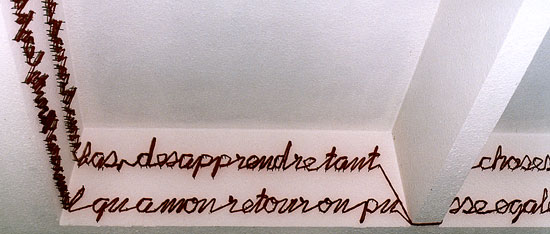 bas, desapprendre tant choses
qu a mon retour on pu sse egale